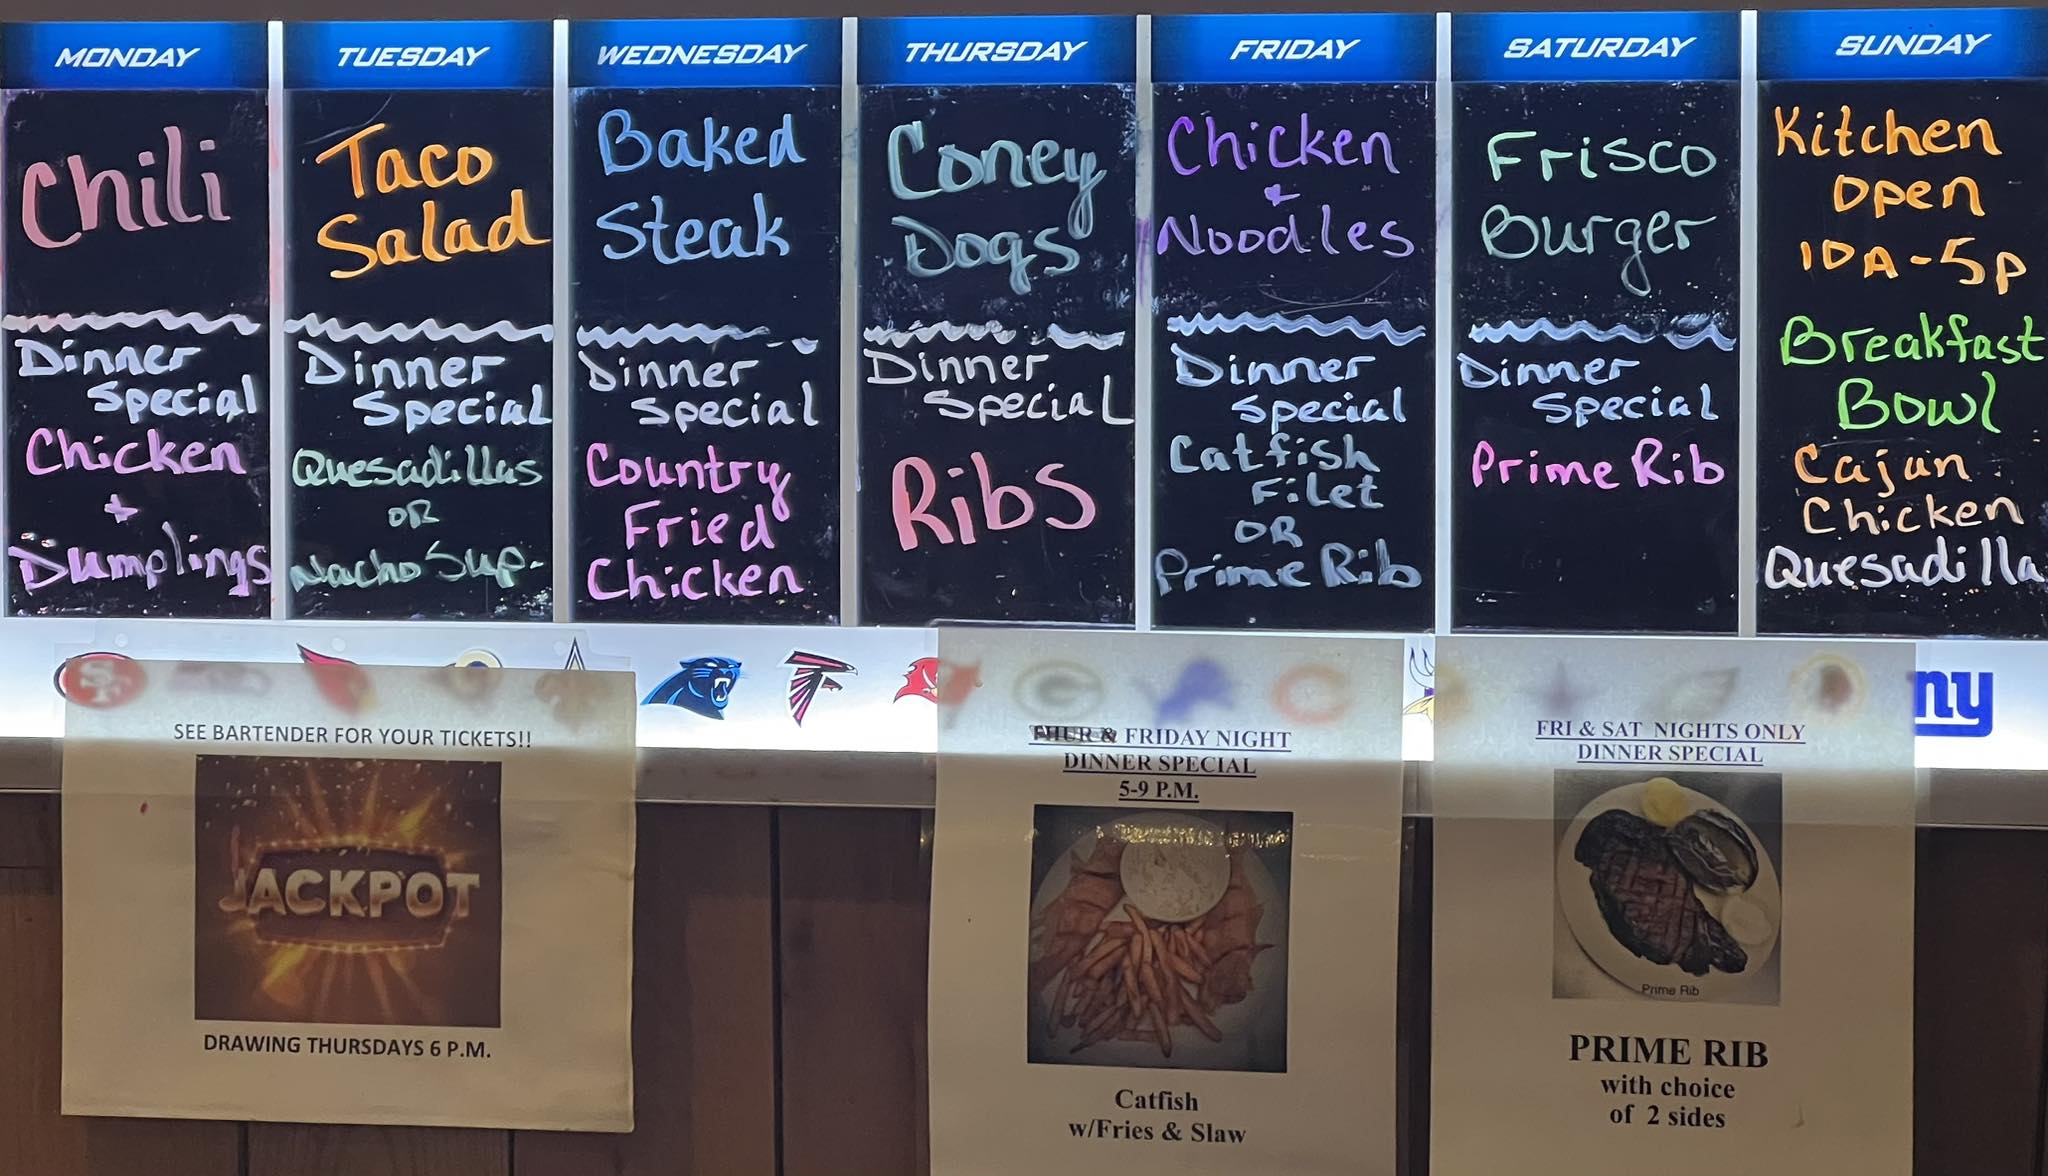 MONDAY
Chili
Dinner
Special
Chicken
+
Dumplings
TUESDAY
Taco
Salad
Dinner
Special
Quesadillas
OR
Nacho Sup.
WEDNESDAY
Baked
Steak
Dinner
Special
Country
Fried
Chicken
THURSDAY
Coney
Dogs
Dinner
Special
Ribs
FRIDAY
Chicken
+
Noodles
Dinner
Special
Catfish
Filet
OR
Prime Rib
SATURDAY
Frisco
Burger
Dinner
Special
Prime Rib
SUNDAY
Kitchen
Open
10A-5p
Breakfast
Bowl
Cajun
Chicken
Quesadilla
SF
G
C
ny
SEE BARTENDER FOR YOUR TICKETS!!
JACKPOT
DRAWING THURSDAYS 6 P.M.
THUR & FRIDAY NIGHT
DINNER SPECIAL
5-9 P.M.
Catfish
w/Fries & Slaw
FRI & SAT NIGHTS ONLY
DINNER SPECIAL
Prime Rib
PRIME RIB
with choice
of 2 sides